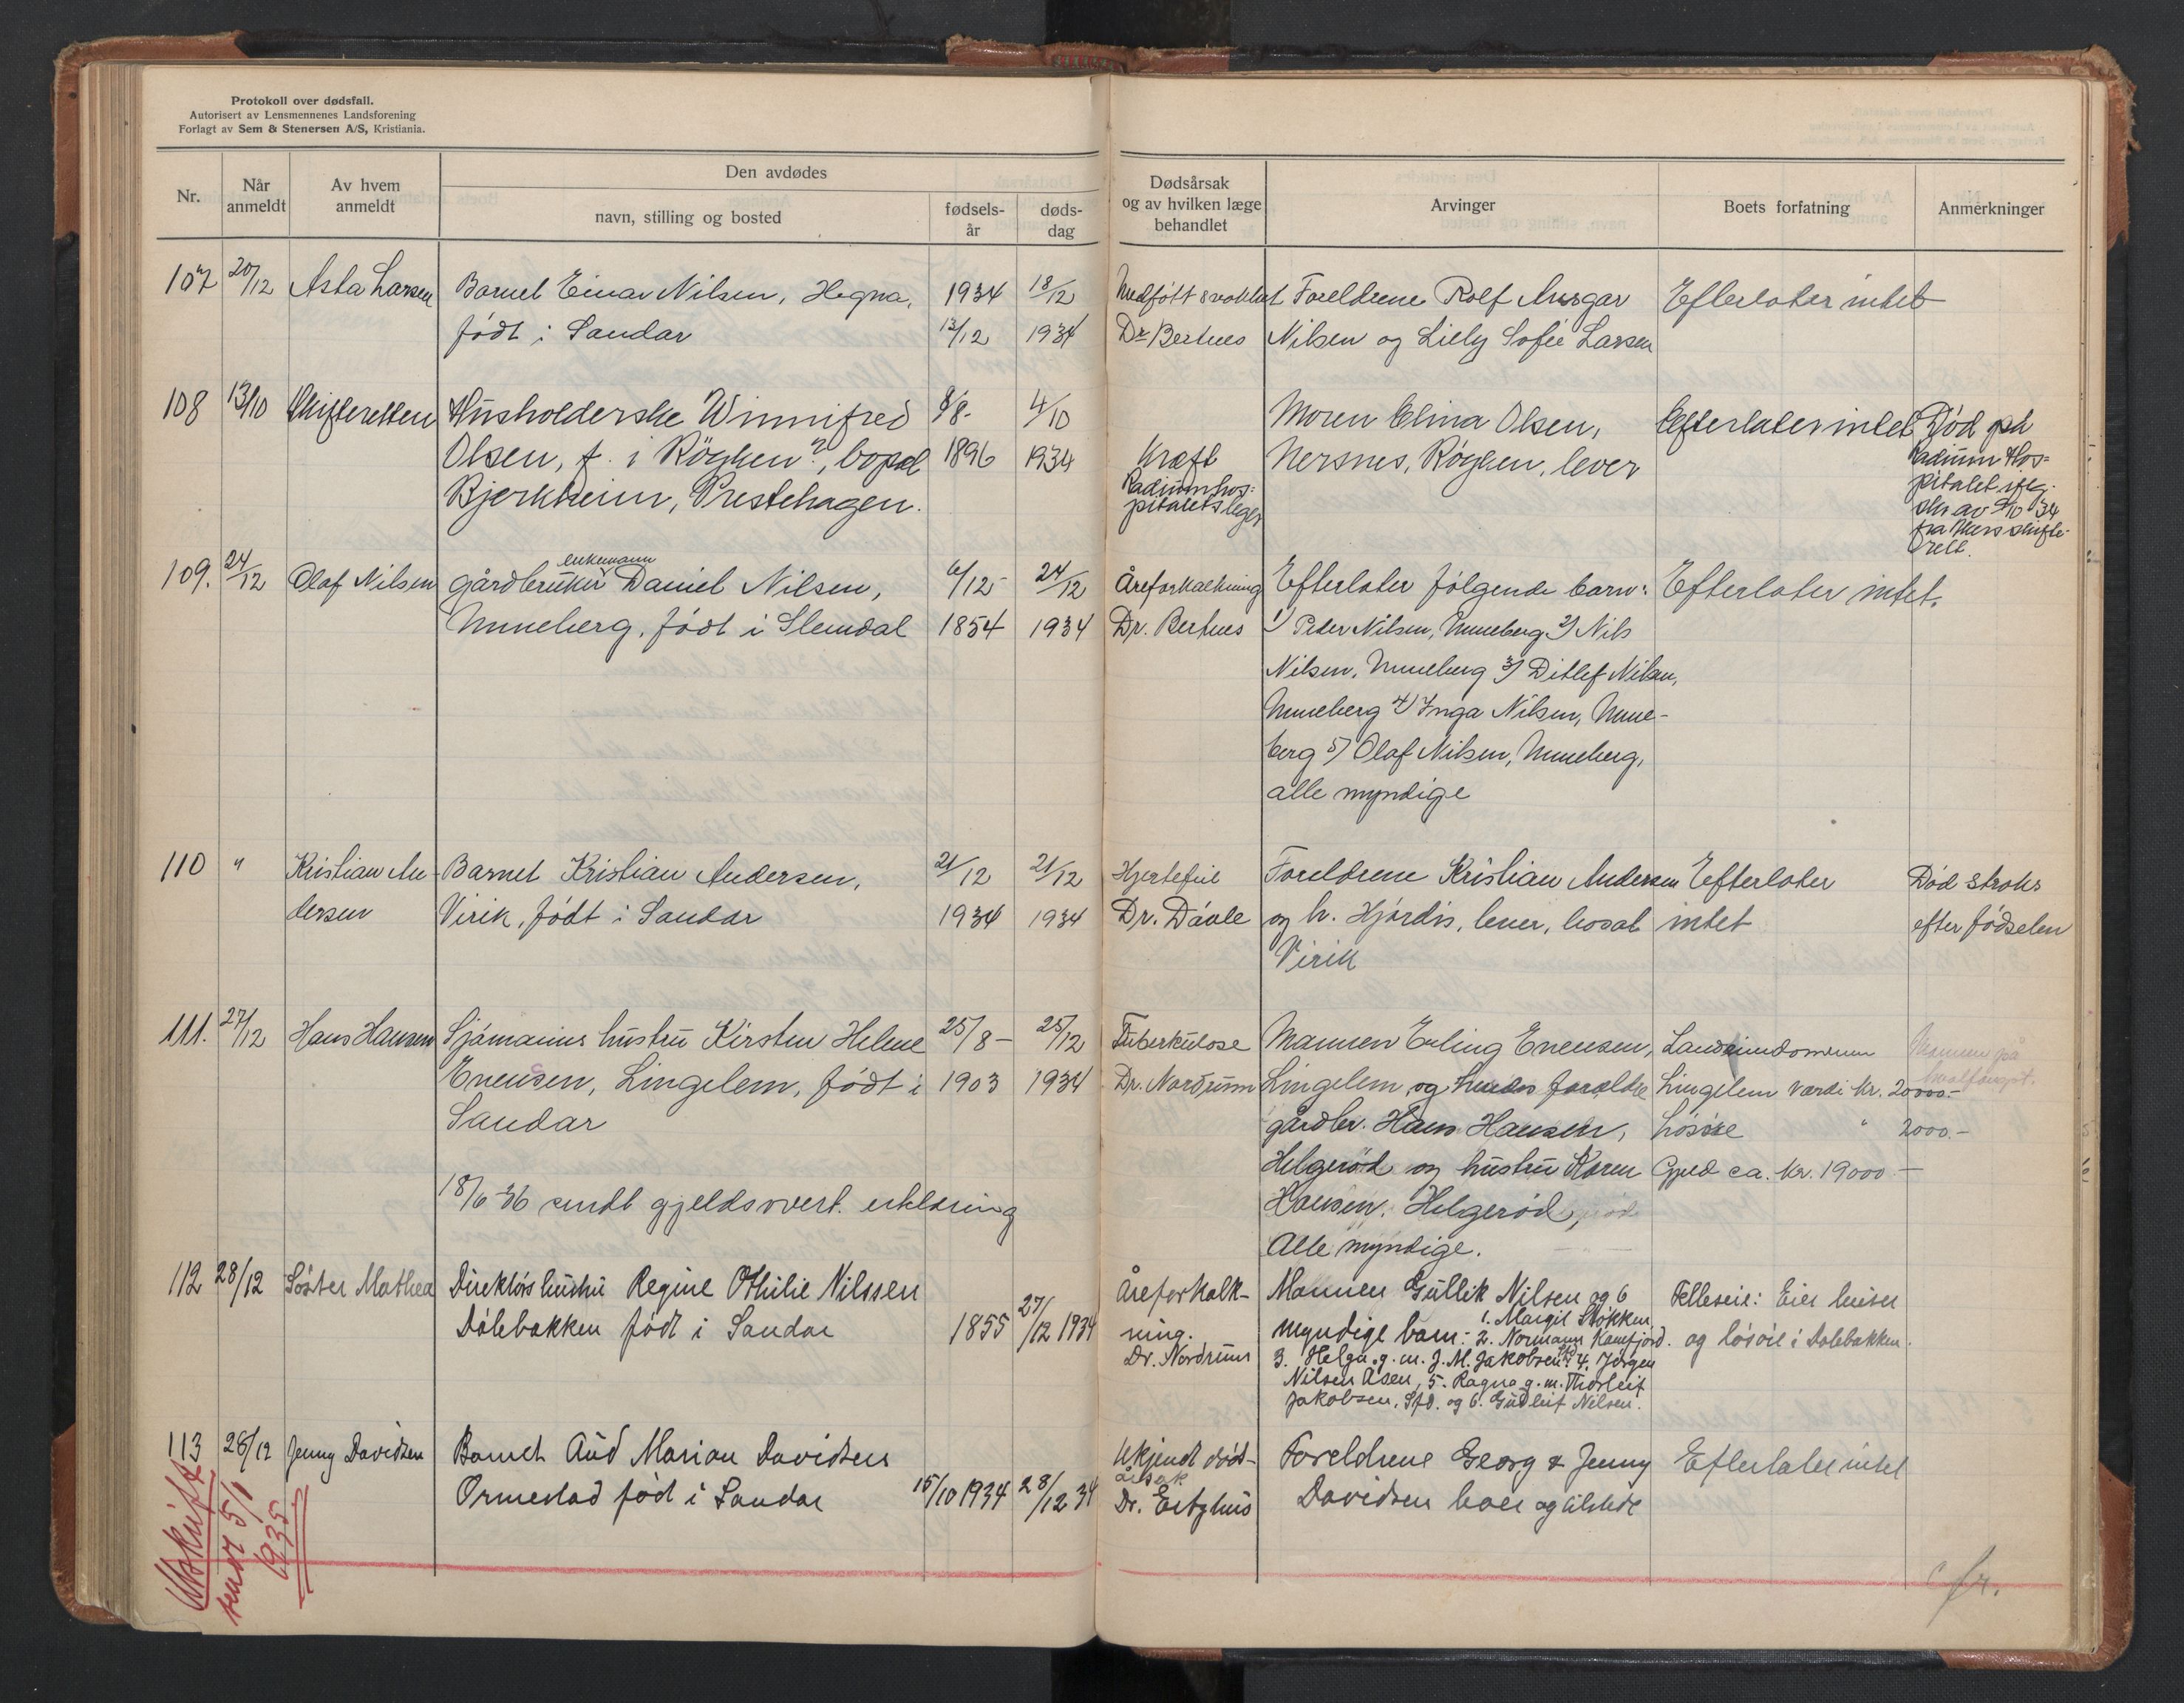 Protokoll over dødsfall.
Autorisert av Lensmennenes Landsforening
Forlagt av Sem & Stenersen A/S, Kristiania.
Nr.
Når anmeldt
Av hvem anmeldt
Den avdødes
navn, stilling og bosted
fødsels-år
døds-dag
Dødsårsak og av hvilken læge behandlet
Arvinger
Boets forfatning
Anmerkninger
107 20/12 Asta Larsen Barnet Einar Nilsen, Hegna, 1934 18/12 Medfött svakhet Foreldrene Rolf Ansgar Efterlater intet
født i Sandar 13/12 1934 Dr Bertnes Nilsen og Lilly Sofie Larsen
108 13/10 Skifteretten Husholderske Winnifred 8/8- 4/10 Moren Elina Olsen, Efterlater intet Død på
Olsen, f. i Röyken?, bopel 1896 1934 Kreft Nersnes, Röyken, lever Radium Hos-
Bjerkheim, Prestehagen. Radiumhos- pitalet iflg.
pitalets leger skr. av 9/10 34
fra skifte-
rett.
109. 24/12 Olaf Nilsen gårdbruker enkemann Daniel Nilsen, 6/12- 24/12 Åreforkalkning Efterlater følgende barn: Efterlater intet.
Unneberg, født i Slemdal 1854 1934 Dr. Bertnes 1) Peder Nilsen, Unneberg 2) Nils
Nilsen, Unneberg 3) Ditlef Nilsen,
Unneberg 4) Inga Nilsen, Unne-
berg 5) Olaf Nilsen, Unneberg,
alle myndige
110 " Kristian An- Barnet Kristian Andersen, 21/12 21/12 Hjertefeil Foreldrene Kristian Andersen Efterlater Død straks
dersen Virik, født i Sandar 1934 1934 Dr. Dávle og h. Hjördis, lever, bosat intet efter fødselen
Virik
111. 27/12 Hans Hansen Sjømanns hustru Kirsten Helene 25/8- 25/12 Tuberkulose Mannen Erling Enensen, Landeiendommen Mannen på
Enensen, Lingelem, født i 1903 1934 Dr. Nordrum Lingelem og hendes foreldre Lingelem verdi kr. 20000.- hvalfangst.
Sandar gårdbr. Hans Hansen, Løsøre " 2000.-
Helgerød og hustru Karen Gjeld ca. kr. 19000 -
18/6 36 sendt gjeldsovert. erklæring Hansen, Helgerød,
Alle myndige.
112 28/12 Søster Mathea Direktørs hustru Regine Othilie Nilssen Åreforkalk- Mannen Gullik Nilsen og 6 Felleseie: Eier huset
Dølebakken født i Sandar 1855 27/12 1934 ning. myndige barn: 1. Margit Stokken 2. Normann Kamfjord. og løsøre i Dølebakken.
Dr. Nordrum 3. Helga g. m. J. M. Jakobsen 4. Jørgen
Nilsen Åsen, 5. Ragna g. m. Thorleif
Jakobsen, Sfd. og 6. Gudleif Nilsen.
113 28/12 Jenny Davidsen Barnet Aud Marian Davidsen Ukjendt døds- Foreldrene Georg & Jenny Efterlater intet
Ormestad født i Sandar 15/10 1934 28/12 34 årsak Davidsen lever og tilstede
Dr. Ertzhus
Utskrift
sendt 5/1
1935